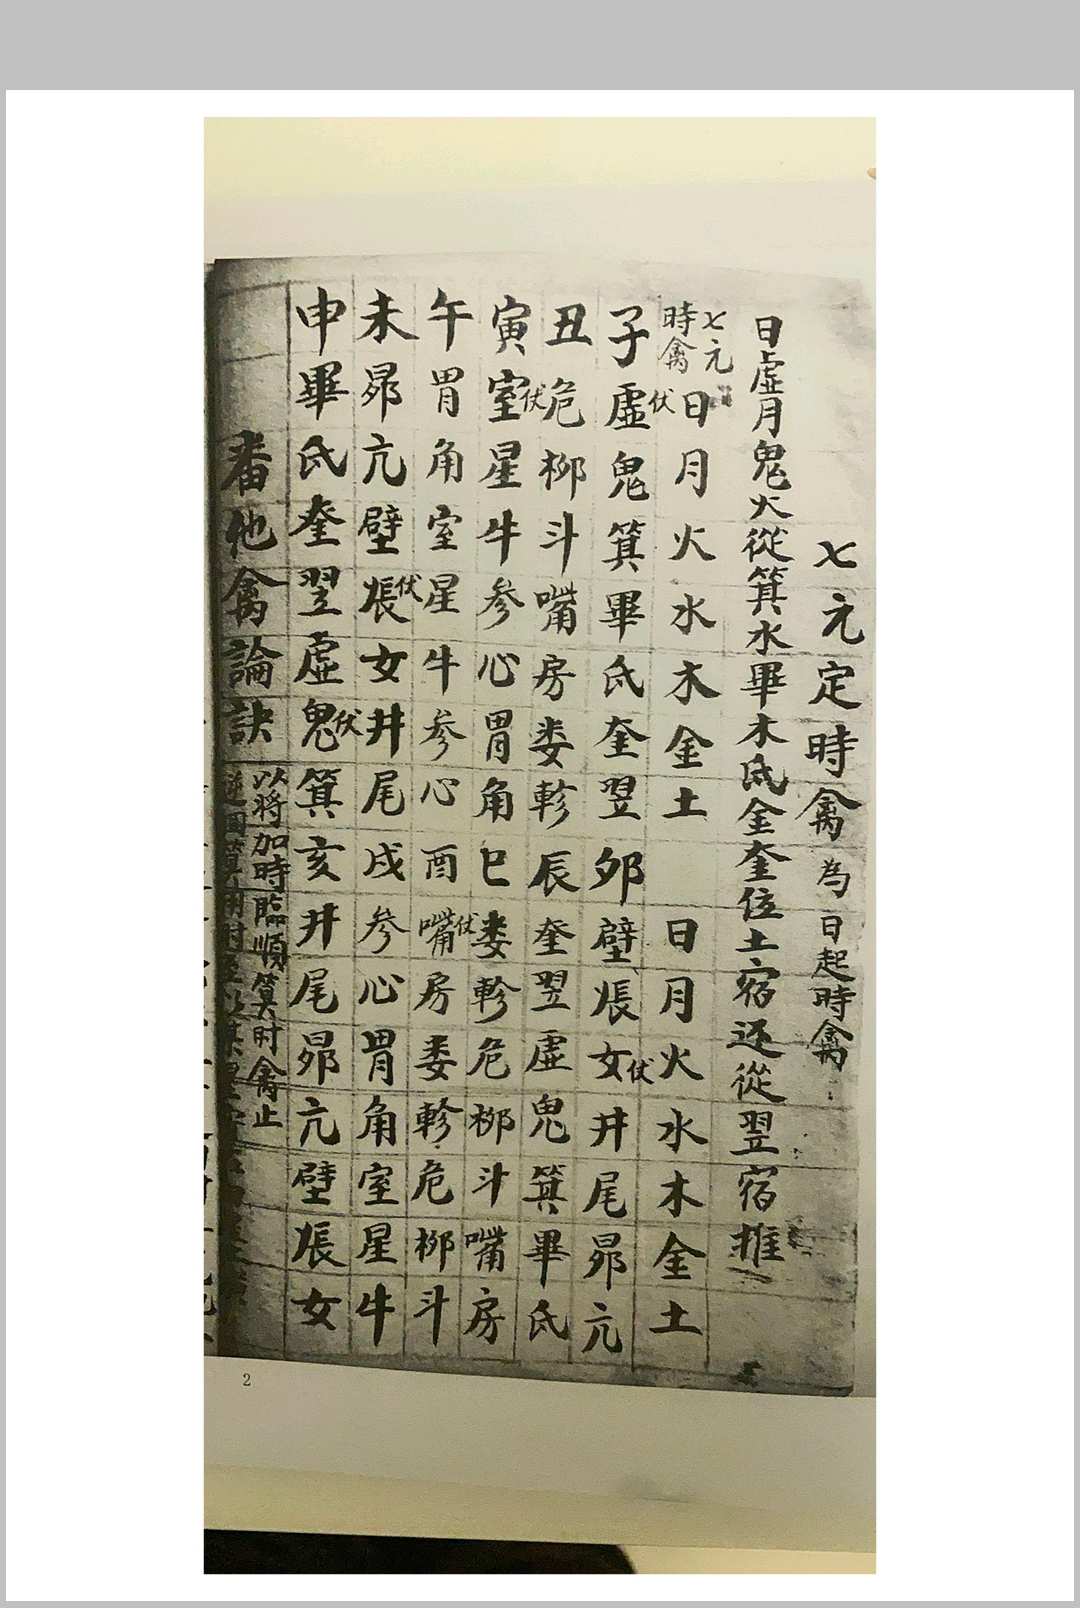 七元定時禽為日起時禽
日虛月鬼火從箕水畢木氐金奎位土宿还從翌宿推
七元時禽
日月火水木金土 日月火水木金土
子虛伏鬼箕畢氐奎翌卯壁張女伏井尾昴亢
丑危柳斗嘴房娄軫辰奎翌虛鬼箕畢氐
寅室伏星牛参心胃角巳娄軫危柳斗嘴房
午胃角室星牛参心酉嘴伏房娄軫危柳斗
未昴亢壁張伏女井尾戌参心胃角室星牛
申畢氐奎翌虛鬼伏箕亥井尾昴亢壁張女
番他禽論訣
以將加時臨順箕时禽止
2